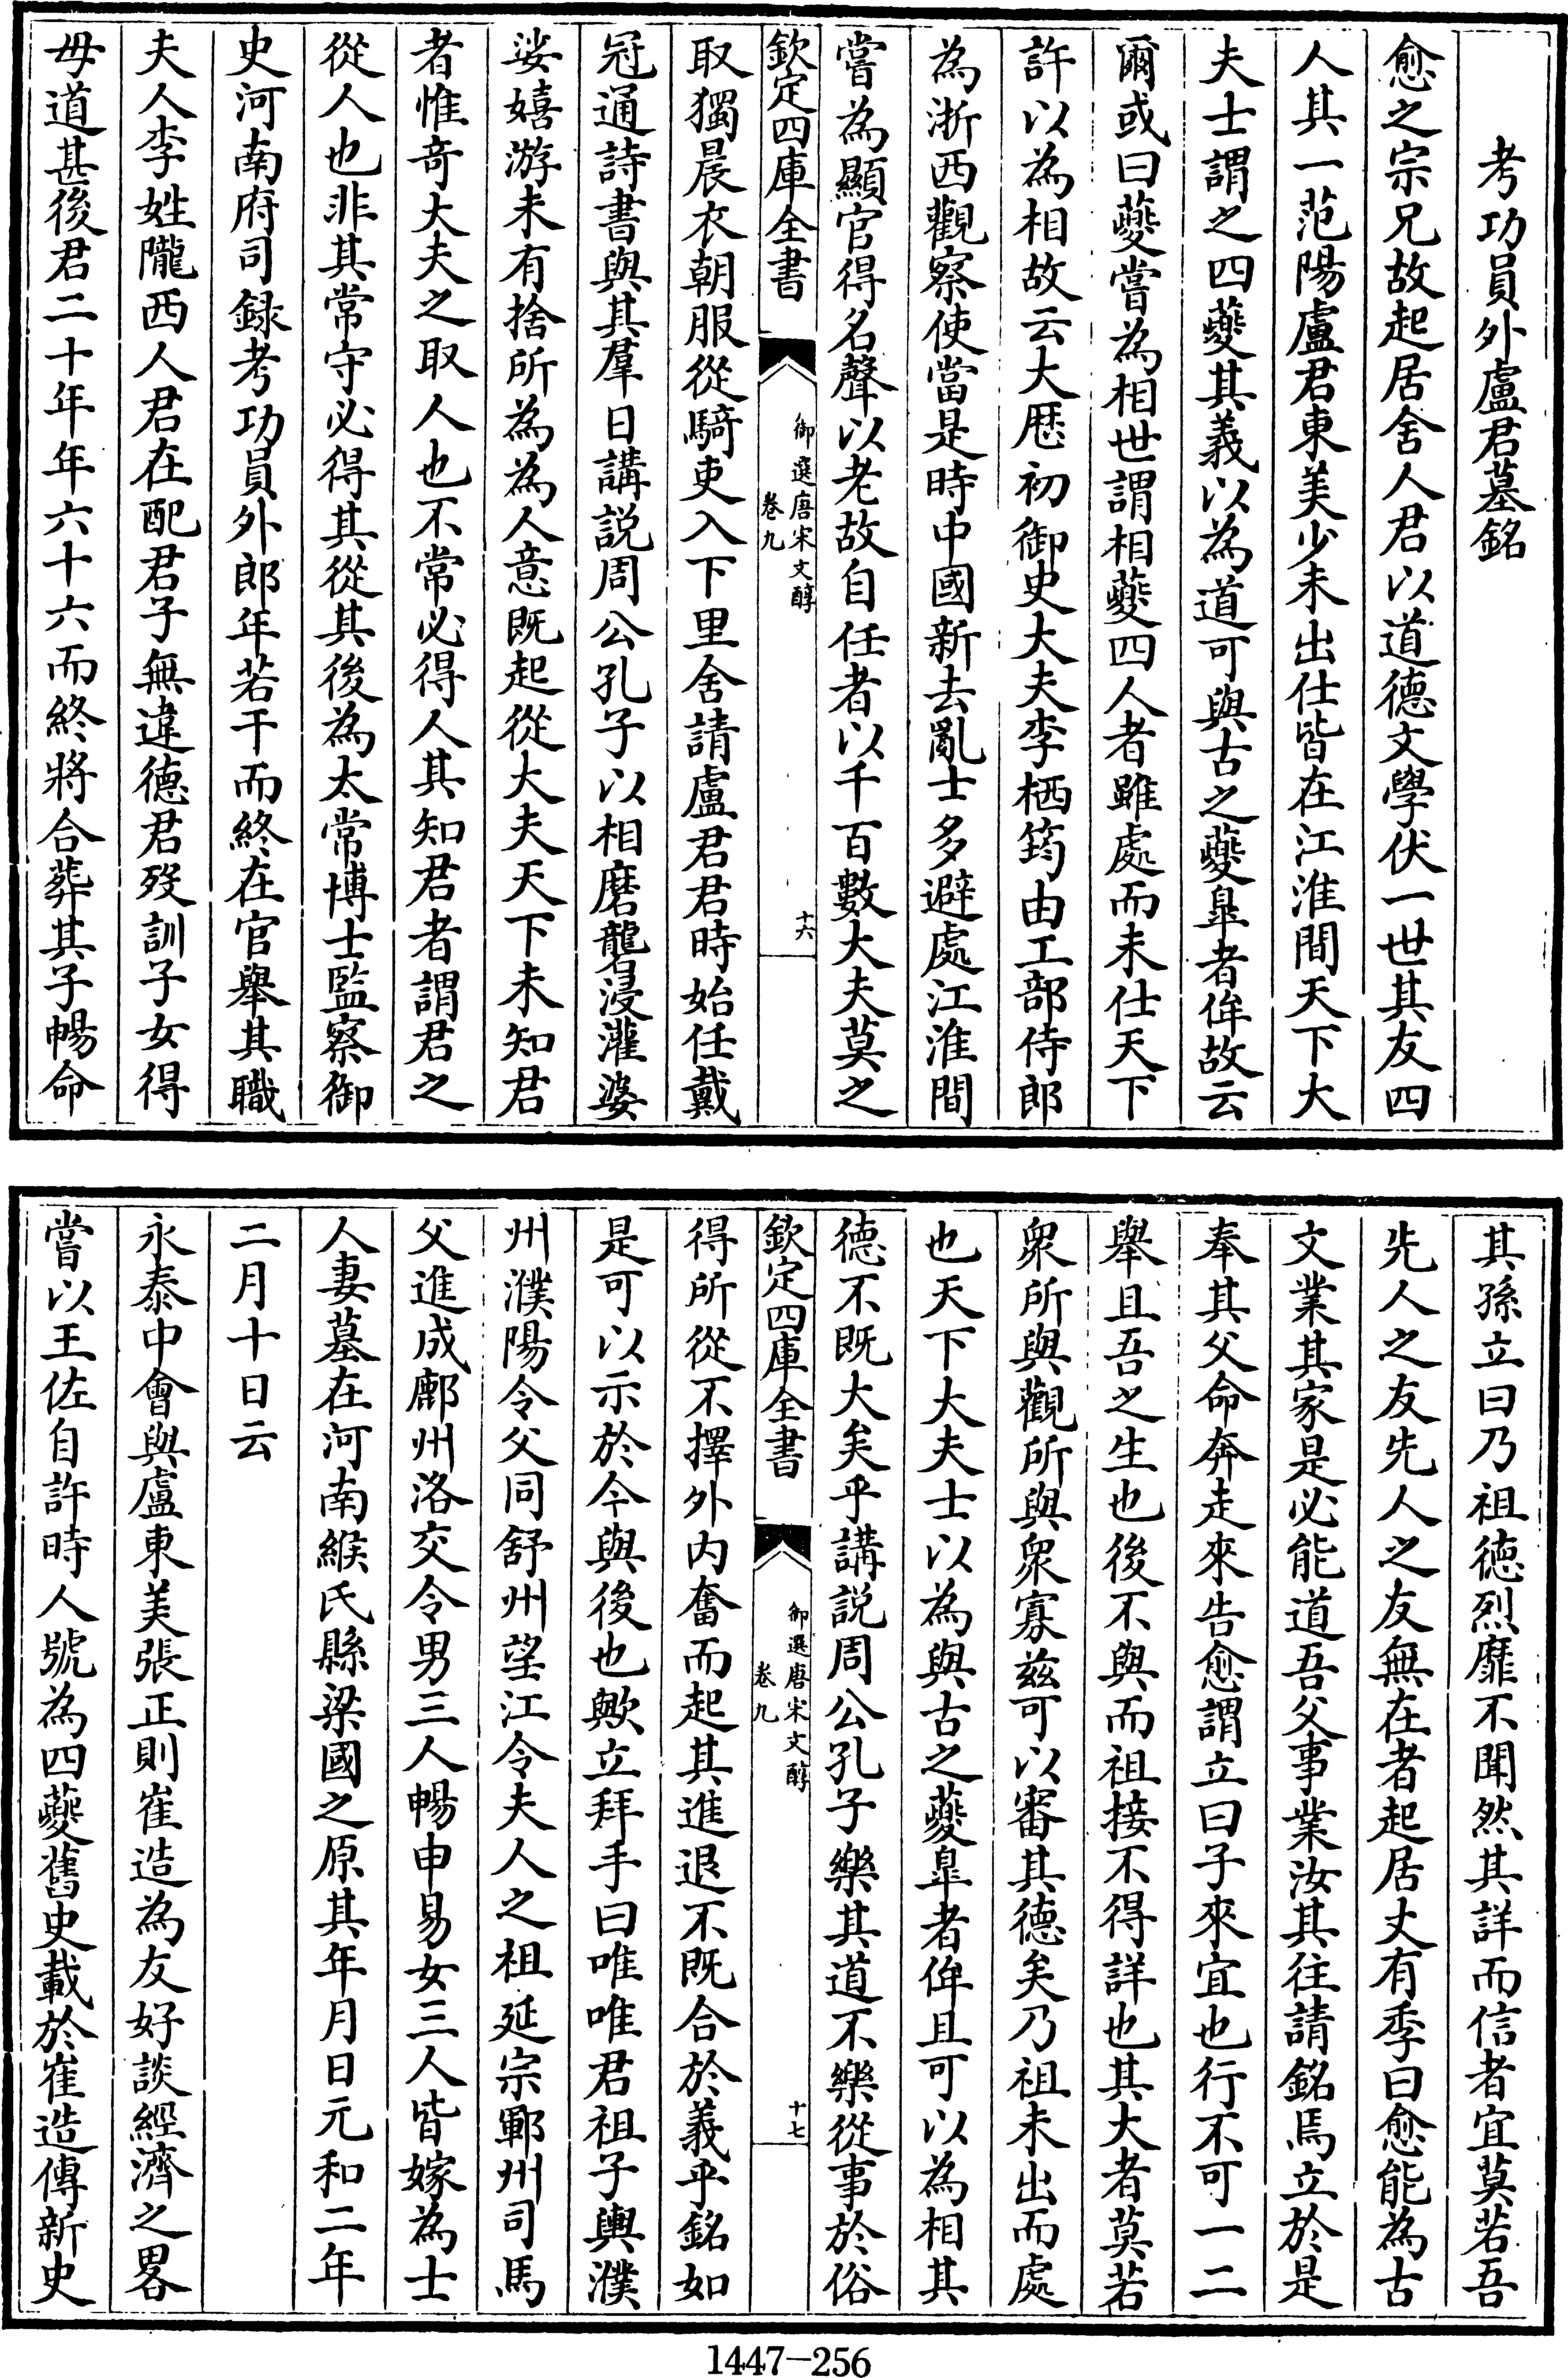 考功員外盧君墓銘
愈之宗兄故起居舍人君以道德文學伏一世其友四
人其一范陽盧君東美少未出仕皆在江淮間天下大
夫士謂之四夔其義以為道可與古之夔臯者侔故云
爾或曰夔嘗為相世謂相夔四人者雖處而未仕天下
許以為相故云大厯初御史大夫李栖筠由工部侍郎
為浙西觀察使當是時中國新去亂士多避處江淮間
嘗為顯官得名聲以老故自任者以千百數大夫莫之
欽定四庫全書
御選唐宋文醇
卷九
十六
取獨晨衣朝服從騎吏入下里舍請盧君君時始任戴
冠通詩書與其羣日講說周公孔子以相磨礱浸灌婆
娑嬉游未有捨所為為人意既起從大夫天下未知君
者惟竒大夫之取人也不常必得人其知君者謂君之
從人也非其常守必得其從其後為太常博士監察御
史河南府司録考功員外郎年若干而終在官舉其職
夫人李姓隴西人君在配君子無違德君歿訓子女得
母道甚後君二十年年六十六而終將合葬其子暢命
其孫立曰乃祖德烈靡不聞然其詳而信者宜莫若吾
先人之友先人之友無在者起居丈有季曰愈能為古
文業其家是必能道吾父事業汝其往請銘焉立於是
奉其父命奔走來告愈謂立曰子來宜也行不可一二
舉且吾之生也後不與而祖接不得詳也其大者莫若
衆所與觀所與衆寡兹可以審其德矣乃祖未出而處
也天下大夫士以為與古之夔臯者侔且可以為相其
德不既大矣乎講說周公孔子樂其道不樂從事於俗
欽定四庫全書
御選唐宋文醇
卷九
十七
得所從不擇外内奮而起其進退不既合於義乎銘如
是可以示於今與後也歟立拜手曰唯唯君祖子輿濮
州濮陽令父同舒州望江令夫人之祖延宗鄆州司馬
父進成鄜州洛交令男三人暢申易女三人皆嫁為士
人妻墓在河南緱氏縣梁國之原其年月日元和二年
二月十日云
永泰中會與盧東美張正則崔造為友好談經濟之畧
嘗以王佐自許時人號為四夔舊史載於崔造傳新史
1447-256